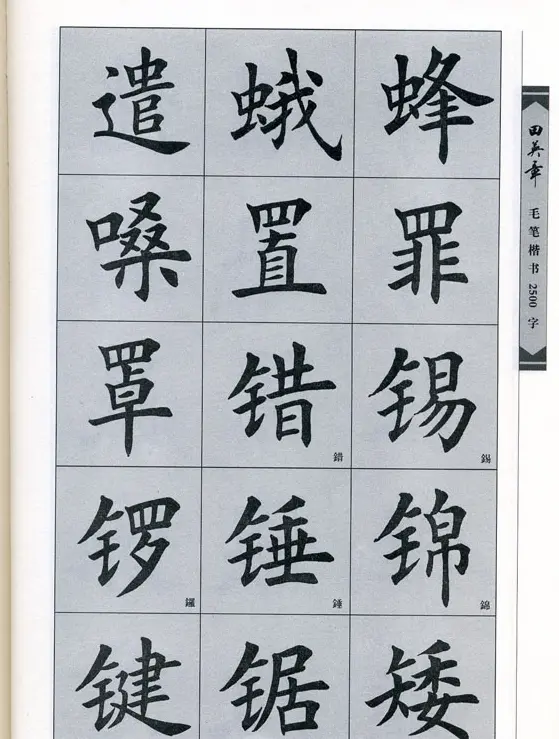 遣 蛾 蜂
嗓 置 罪
罩 错 锡
錯 錫
锣 锤 锦
鑼 錘 錦
键 锯 矮
田英章
毛笔楷书2500字